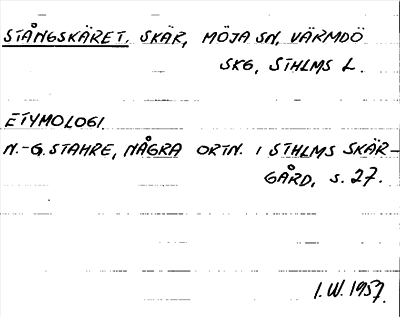 STÅNGSKÄRET, SKÄR, MÖJA SN, VÄRMDÖ
SKG, STHLMS L.
ETYMOLOGI.
N.-G. STAHRE, NÅGRA ORTN. I STHLMS SKÄR-
GÅRD, s. 27.
I.W. 1957.